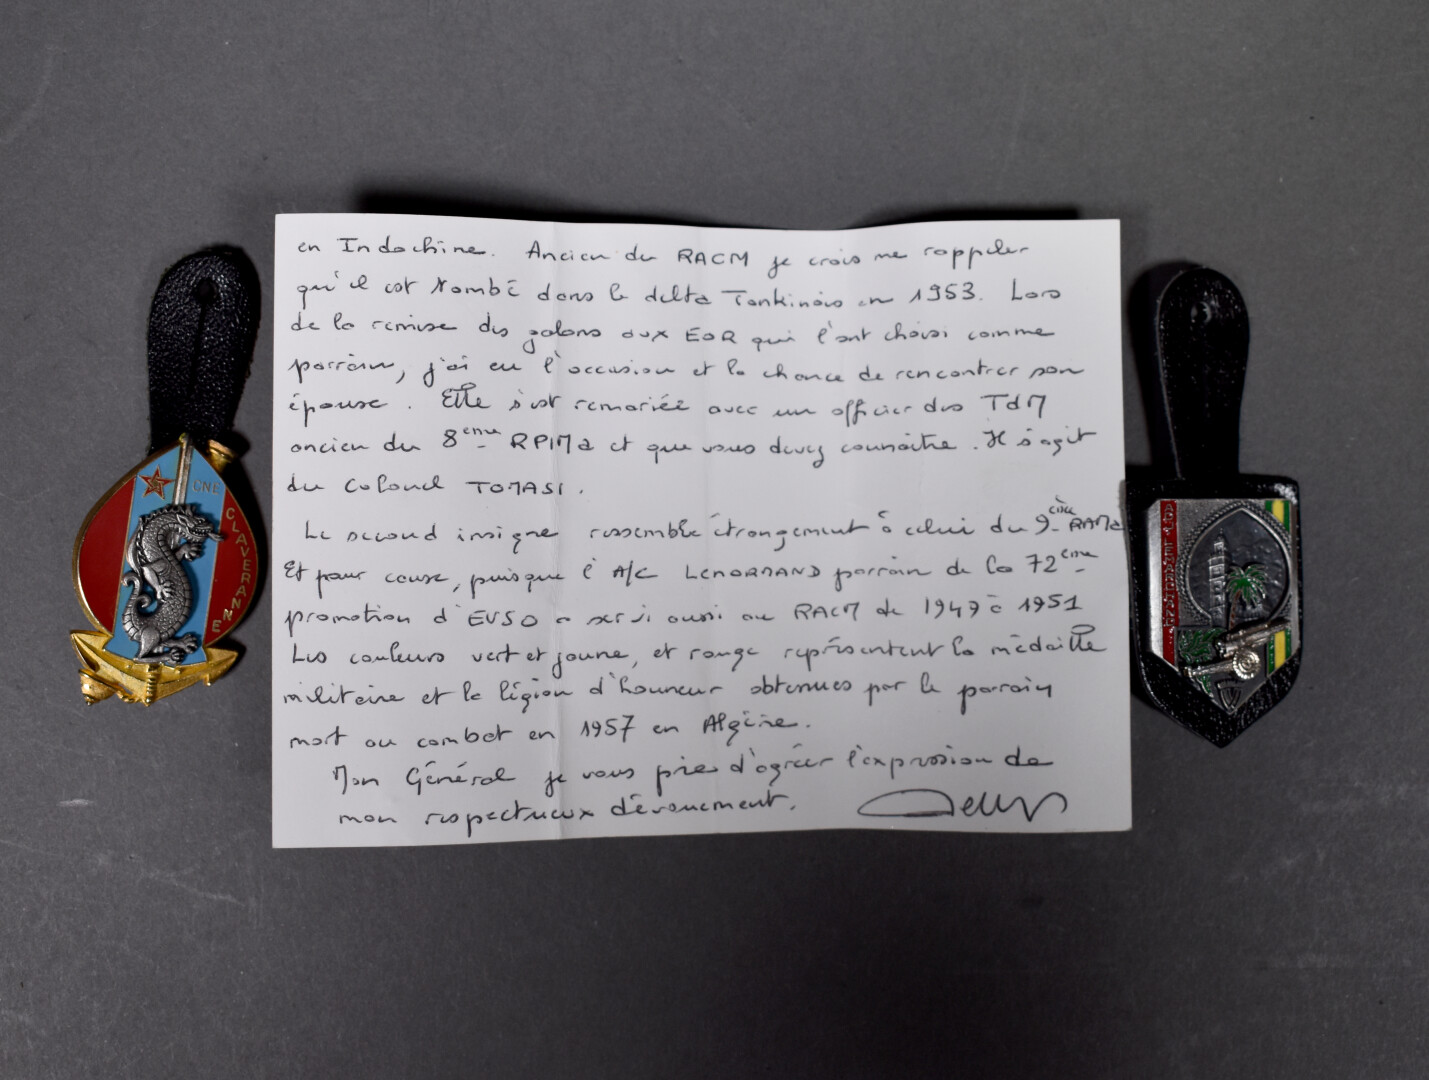 CNE
CLAVERANNE
en Indochine. Ancien du RACM je crois me rappeler
qu'il est tombé dans le delta Tonkinois en 1953. Lors
de la remise des galons aux EOR qui l'ont choisi comme
parrain, j'ai eu l'occasion et la chance de rencontrer son
épouse. Elle s'est remariée avec un officier des TDM
ancien du 8ème RPIMa et que vous devez connaître. Il s'agit
du Colonel TOMASI.
Le second insigne ressemble étrangement à celui du 9ème RAMa
Et pour cause, puisque l'A/C LENORMAND parrain de la 72ème
promotion d'EVSO a servi aussi au RACM de 1949 à 1951
Les couleurs vert et jaune, et rouge représentent la médaille
militaire et la légion d'honneur obtenues par le parrain
mort au combat en 1957 en Algérie.
Mon Général je vous prie d'agréer l'expression de
mon respectueux dévouement.